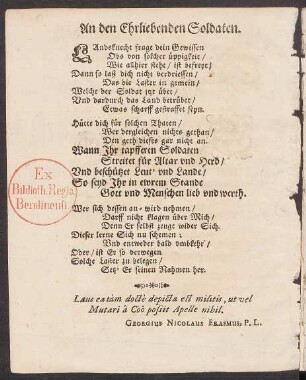 An den Ehrliebenden Soldaten.
LAndsknecht frage dein Gewissen
Obs von solcher üppigkeit /
Wie allhier steht / ist befreyt;
Dann so laß dich nicht verdriessen /
Das die Laster in gemein /
Welche der Soldat jtzt über /
Und dardurch das Land betrüber /
Etwas scharff gestraffet seyn.
Hütte dich für solchen Thaten /
Wer dergleichen nichts gethan /
Den geth dieses gar nicht an.
Wann Ihr tapfferen Soldaten
Streitet für Altar vnd Herd /
Vnd beschützet Leut vnd Lande /
So seyd Ihr in ewrem Stande
Gott vnd Menschen lieb vnd werth.
Wer sich dessen an- wird nehmen /
Darff nicht klagen über Mich /
Denn Er selbst zeugt wider Sich.
Dieser lerne Sich nu schemen ;
Vnd entweder bald vmbkehr /
Oder / ist Er so verwegen
Solche Laster zu belegen /
Setz' Er seinen Nahmen her.
Ex
Biblioth. Regia
Berolinensi.
Laus ea tam doctè depicta est militis, ut vel
Mutari à Coô possit Apelle nihil.
GEORGIUS NICOLAUS ERASMUS, P. L.